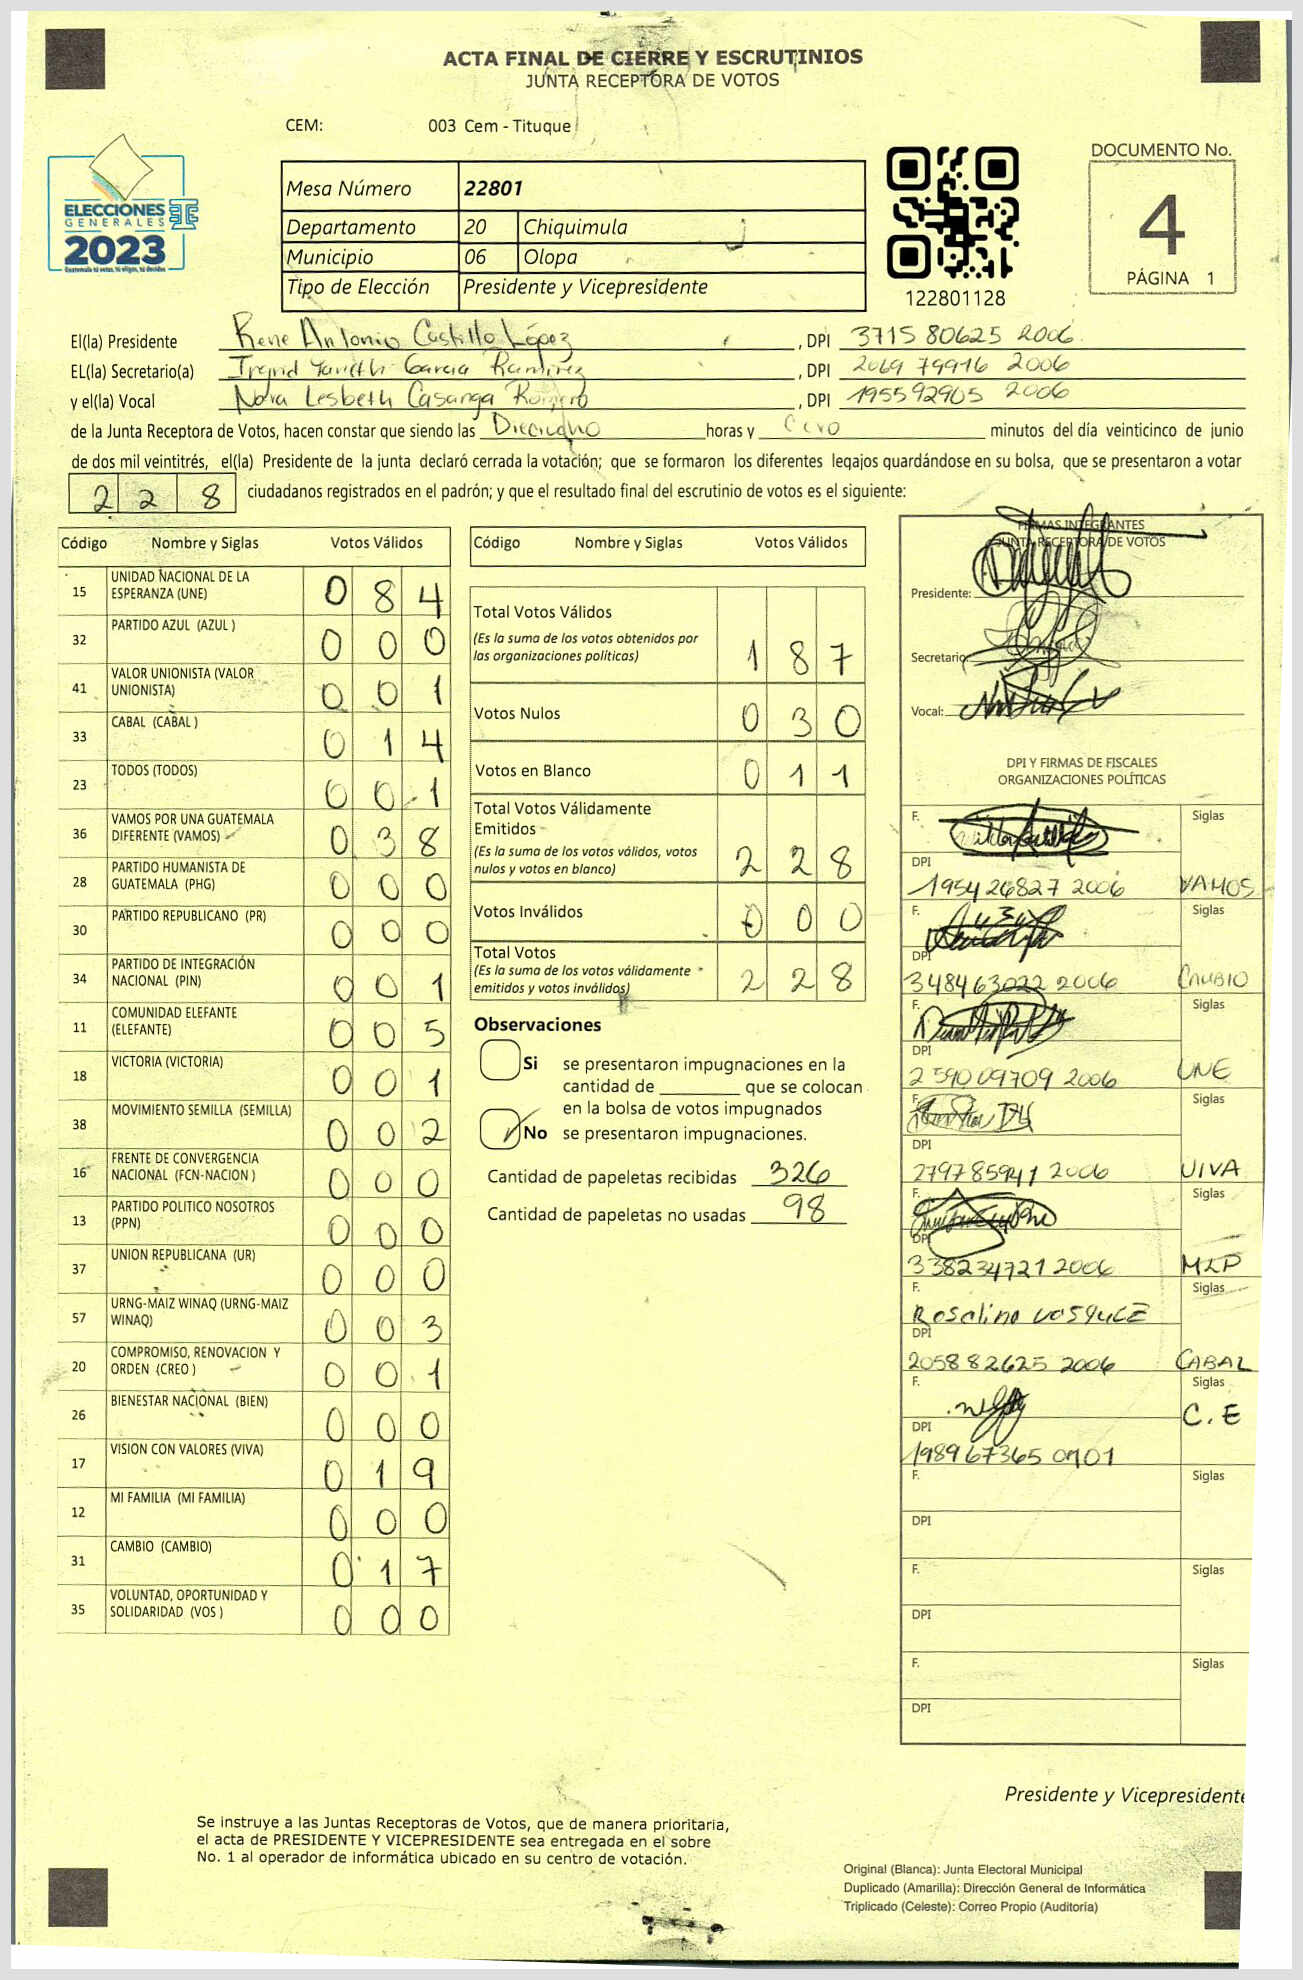 ACTA FINAL DE CIERRE Y ESCRUTINIOS
JUNTA RECEPTORA DE VOTOS
CEM: 003 Cem - Tituque
ELECCIONES
GENERALES
2023
Guatemala tú votas, tú eliges, tú decides
Mesa Número 22801
Departamento 20 Chiquimula
Municipio 06 Olopa
Tipo de Elección Presidente y Vicepresidente
122801128
DOCUMENTO No.
4
PÁGINA 1
El(la) Presidente Rene Antonio Castillo López, DPI 3715 80625 2006
EL(la) Secretario(a) Ingrid Yaneth Garcia Ramirez, DPI 2069 79916 2006
y el(la) Vocal Nora Lesbeth Casanga Romero, DPI 195592905 2006
de la Junta Receptora de Votos, hacen constar que siendo las Dieciocho horas y Cero minutos del día veinticinco de junio
de dos mil veintitrés, el(la) Presidente de la junta declaró cerrada la votación; que se formaron los diferentes legajos guardándose en su bolsa, que se presentaron a votar
228 ciudadanos registrados en el padrón; y que el resultado final del escrutinio de votos es el siguiente:
Código Nombre y Siglas Votos Válidos
15 UNIDAD NACIONAL DE LA ESPERANZA (UNE) 084
32 PARTIDO AZUL (AZUL ) 000
41 VALOR UNIONISTA (VALOR UNIONISTA) 001
33 CABAL (CABAL ) 014
23 TODOS (TODOS) 001
36 VAMOS POR UNA GUATEMALA DIFERENTE (VAMOS) 038
28 PARTIDO HUMANISTA DE GUATEMALA (PHG) 000
30 PARTIDO REPUBLICANO (PR) 000
34 PARTIDO DE INTEGRACIÓN NACIONAL (PIN) 001
11 COMUNIDAD ELEFANTE (ELEFANTE) 005
18 VICTORIA (VICTORIA) 001
38 MOVIMIENTO SEMILLA (SEMILLA) 002
16 FRENTE DE CONVERGENCIA NACIONAL (FCN-NACION ) 000
13 PARTIDO POLITICO NOSOTROS (PPN) 000
37 UNION REPUBLICANA (UR) 000
57 URNG-MAIZ WINAQ (URNG-MAIZ WINAQ) 003
20 COMPROMISO, RENOVACION Y ORDEN (CREO ) 001
26 BIENESTAR NACIONAL (BIEN) 000
17 VISION CON VALORES (VIVA) 019
12 MI FAMILIA (MI FAMILIA) 000
31 CAMBIO (CAMBIO) 017
35 VOLUNTAD, OPORTUNIDAD Y SOLIDARIDAD (VOS ) 000
Código Nombre y Siglas Votos Válidos
Total Votos Válidos 187
(Es la suma de los votos obtenidos por
las organizaciones políticas)
Votos Nulos 030
Votos en Blanco 011
Total Votos Válidamente
Emitidos
(Es la suma de los votos válidos, votos
nulos y votos en blanco) 228
Votos Inválidos 000
Total Votos
(Es la suma de los votos válidamente
emitidos y votos inválidos) 228
Observaciones
Si se presentaron impugnaciones en la
cantidad de ________ que se colocan
en la bolsa de votos impugnados
No se presentaron impugnaciones.
Cantidad de papeletas recibidas 326
Cantidad de papeletas no usadas 98
FIRMAS INTEGRANTES
JUNTA RECEPTORA DE VOTOS
Presidente:
Secretario:
Vocal:
DPI Y FIRMAS DE FISCALES
ORGANIZACIONES POLÍTICAS
F. Siglas
DPI
1954 26827 2006 VAMOS
F. Siglas
DPI
348463022 2006 CAMBIO
F. Siglas
DPI
2 59009709 2006 UNE
F. Siglas
DPI
279785941 2006 VIVA
F. Siglas
DPI
338234721 2006 MLP
F. Rosalino Vosquez Siglas
DPI
2058 82625 2006 CABAL
F. Siglas
DPI C.E
198967365 0101
F. Siglas
DPI
F. Siglas
DPI
F. Siglas
DPI
Presidente y Vicepresidente
Se instruye a las Juntas Receptoras de Votos, que de manera prioritaria,
el acta de PRESIDENTE Y VICEPRESIDENTE sea entregada en el sobre
No. 1 al operador de informática ubicado en su centro de votación.
Original (Blanca): Junta Electoral Municipal
Duplicado (Amarilla): Dirección General de Informática
Triplicado (Celeste): Correo Propio (Auditoría)